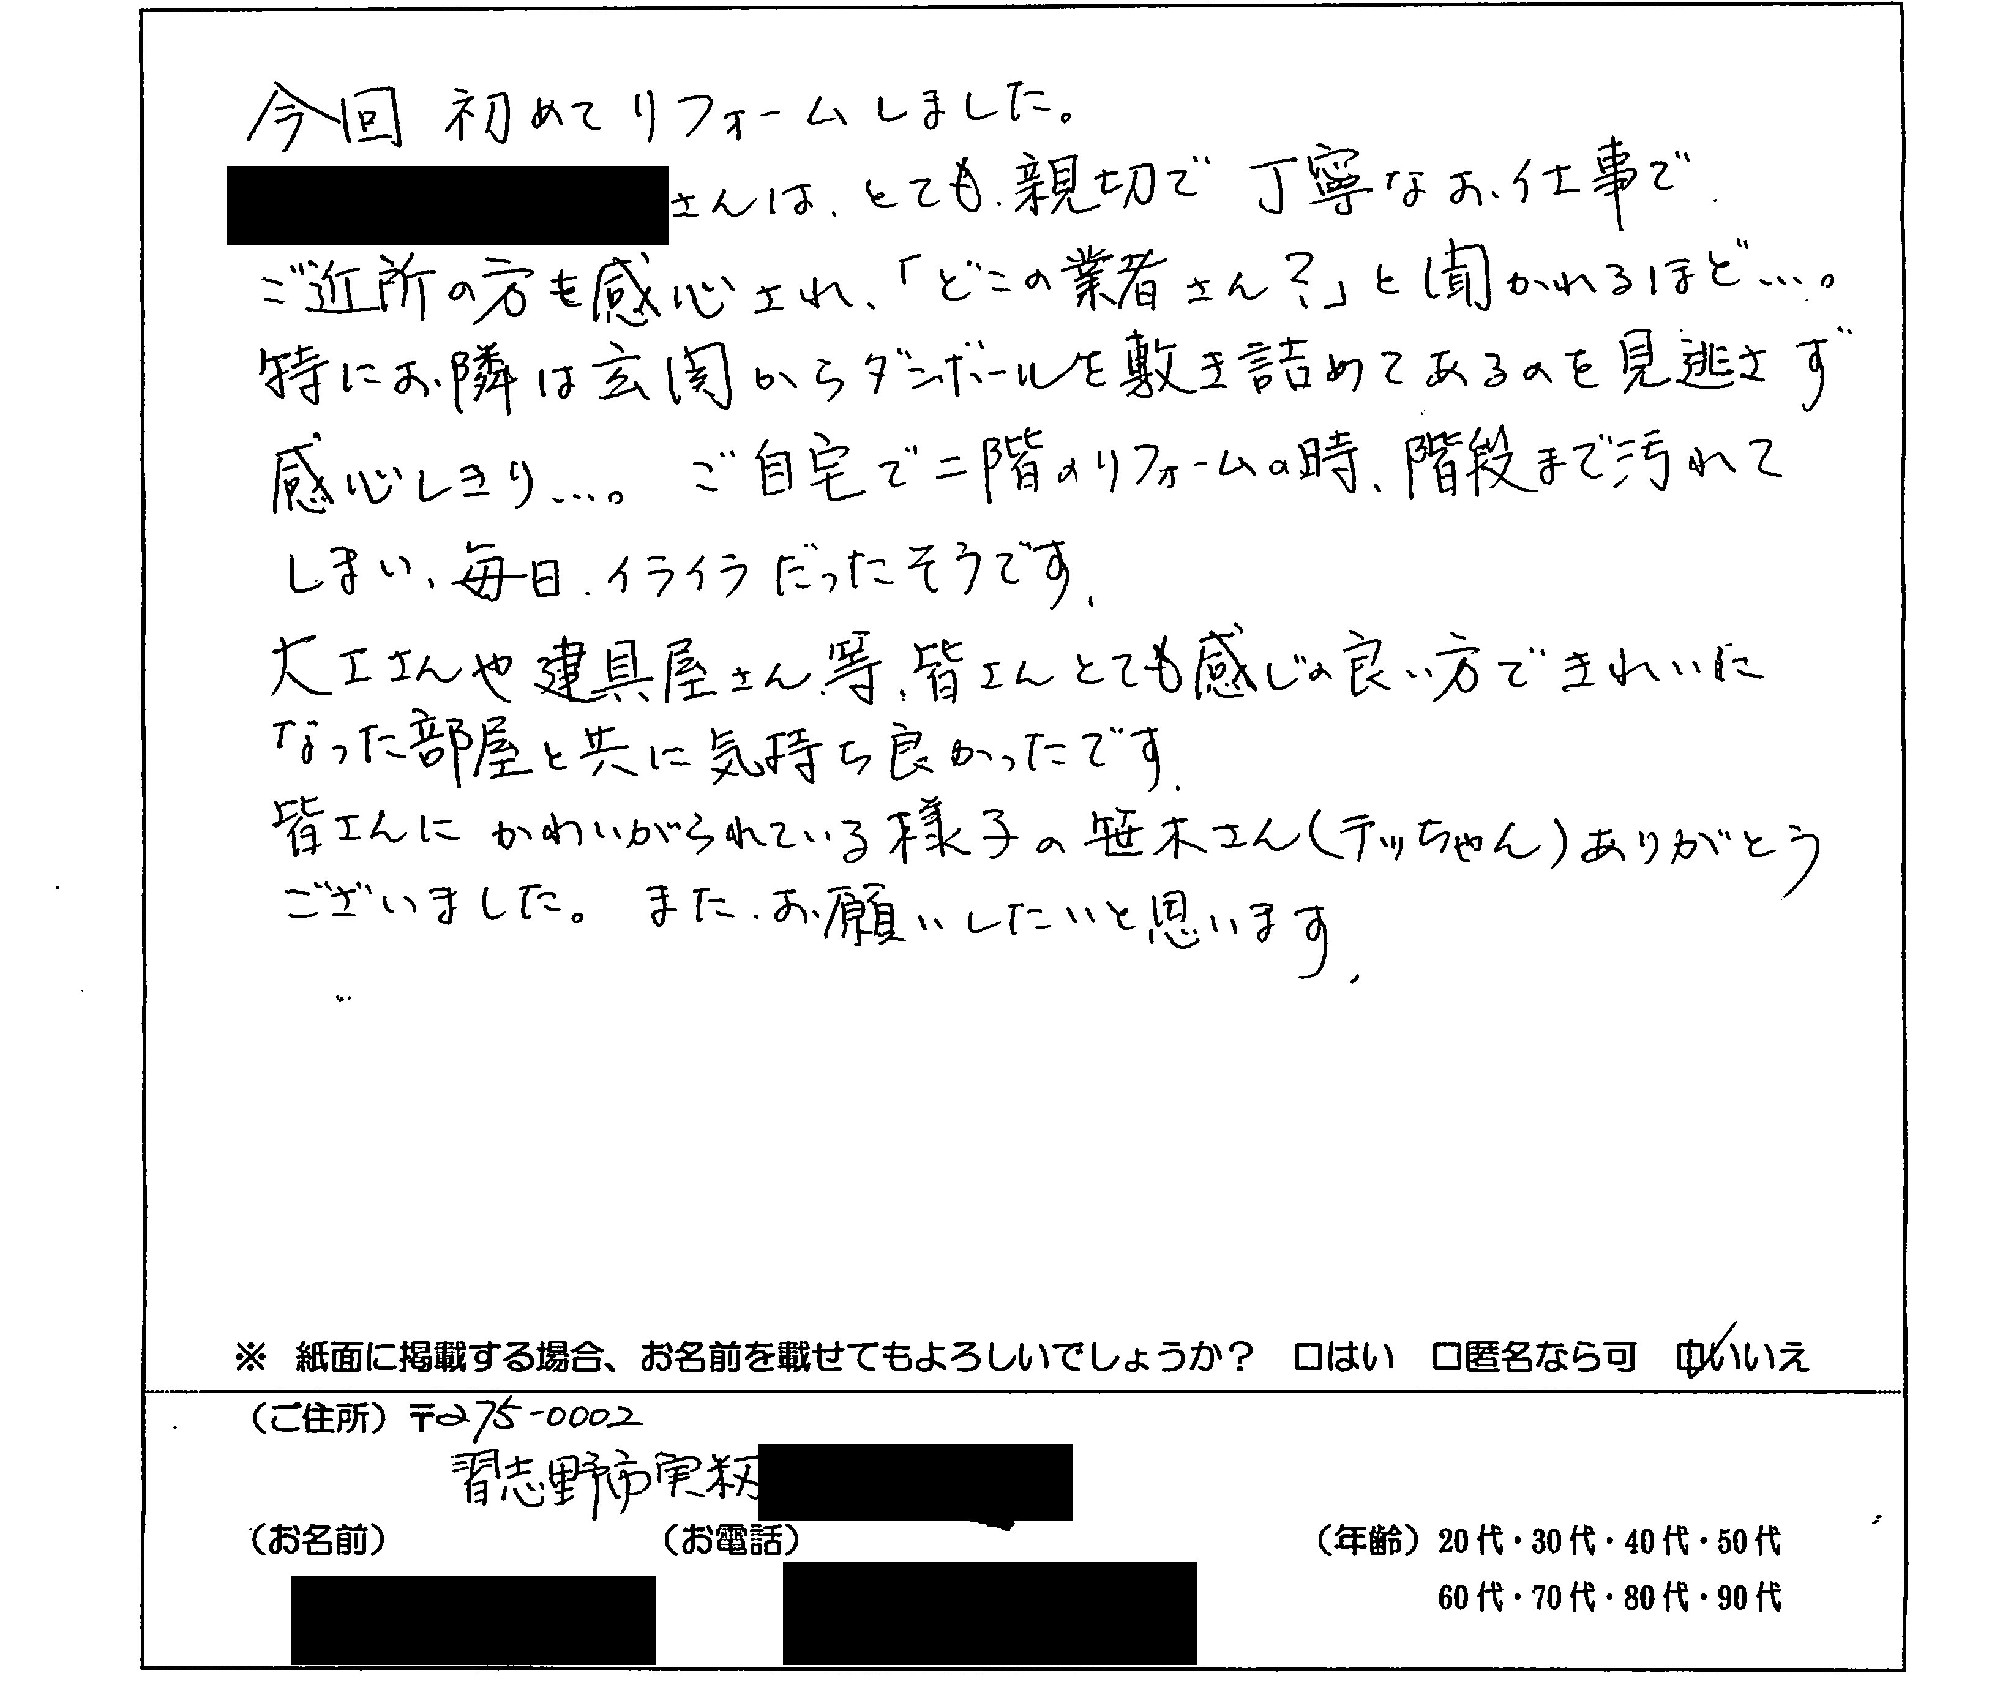 今回 初めてリフォームしました。
さんは、とても、親切で 丁寧なお仕事で、
ご近所の方も感心され、「どこの業者さん?」と聞かれるほど…。
特にお隣は玄関からダンボールを敷き詰めてあるのを見逃さず
感心しきり…。 ご自宅で二階のリフォームの時、階段まで汚れて
しまい、毎日、イライラだったそうです。
大工さんや建具屋さん等、皆さんとても感じの良い方できれいに
なった部屋と共に気持ち良かったです。
皆さんにかわいがられている様子の笹木さん(テッちゃん)ありがとう
ございました。 また、お願いしたいと思います。
※ 紙面に掲載する場合、お名前を載せてもよろしいでしょうか? □はい □匿名なら可 ☑いいえ
(ご住所)〒275-0002
習志野市実籾
(お名前) (お電話) (年齢)20代・30代・40代・50代
60代・70代・80代・90代